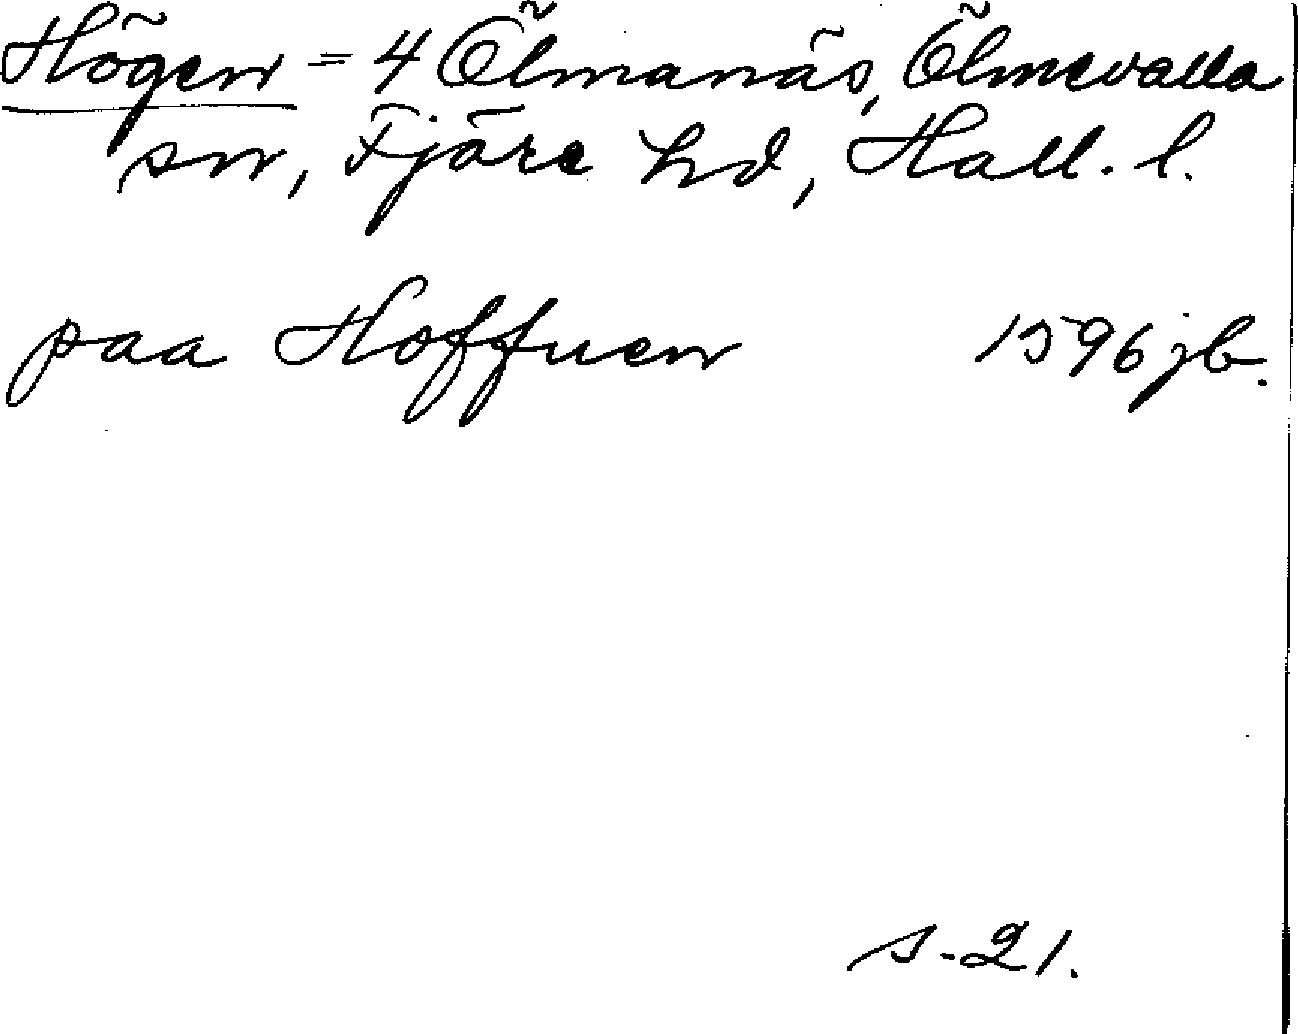 Högen = 4 Ölmanäs, Ölmevalla
sn, Fjäre hd, Hall. l.
paa Hoffuen 1596 jb.
s. 21.